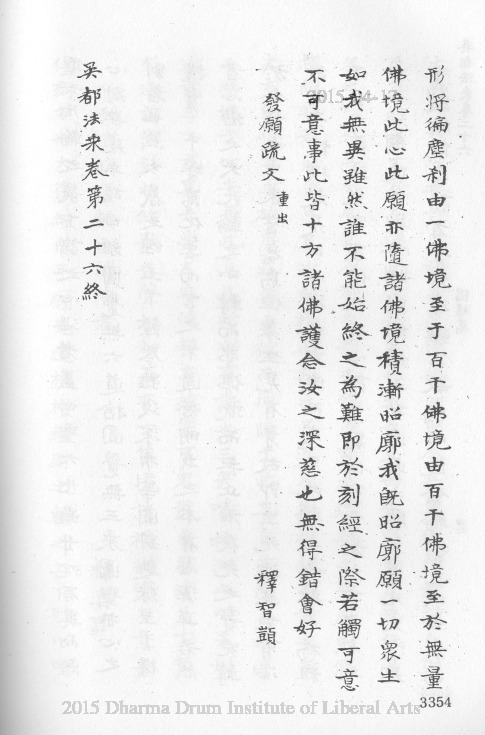 形將徧塵剎由一佛境至于百千佛境由百千佛境至於無量
佛境此心此願亦隨諸佛境積漸昭廓我既昭廓願一切眾生
如我無異雖然誰不能始終之為難即於刻經之際若觸可意
不可意事此皆十方諸佛護念汝之深慈也無得錯會好
發願疏文 重出
釋智顗
吳都法乘卷第二十六終
2015-04-17
3354
2015 Dharma Drum Institute of Liberal Arts